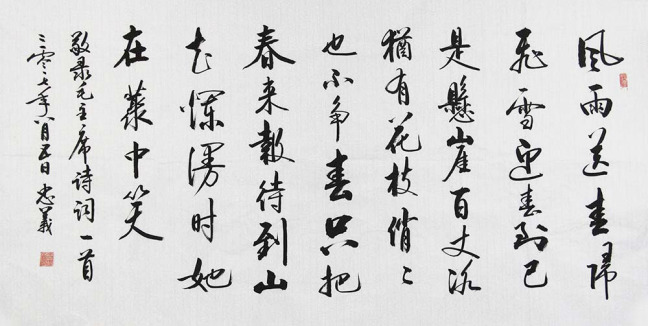 风雨送春歸
飛雪迎春到已
是懸崖百丈冰
猶有花枝俏〻
也不争春只把
春來報待到山
花爛漫時她
在叢中笑
敬录毛主席诗词一首
二零零七年八月五日 忠義